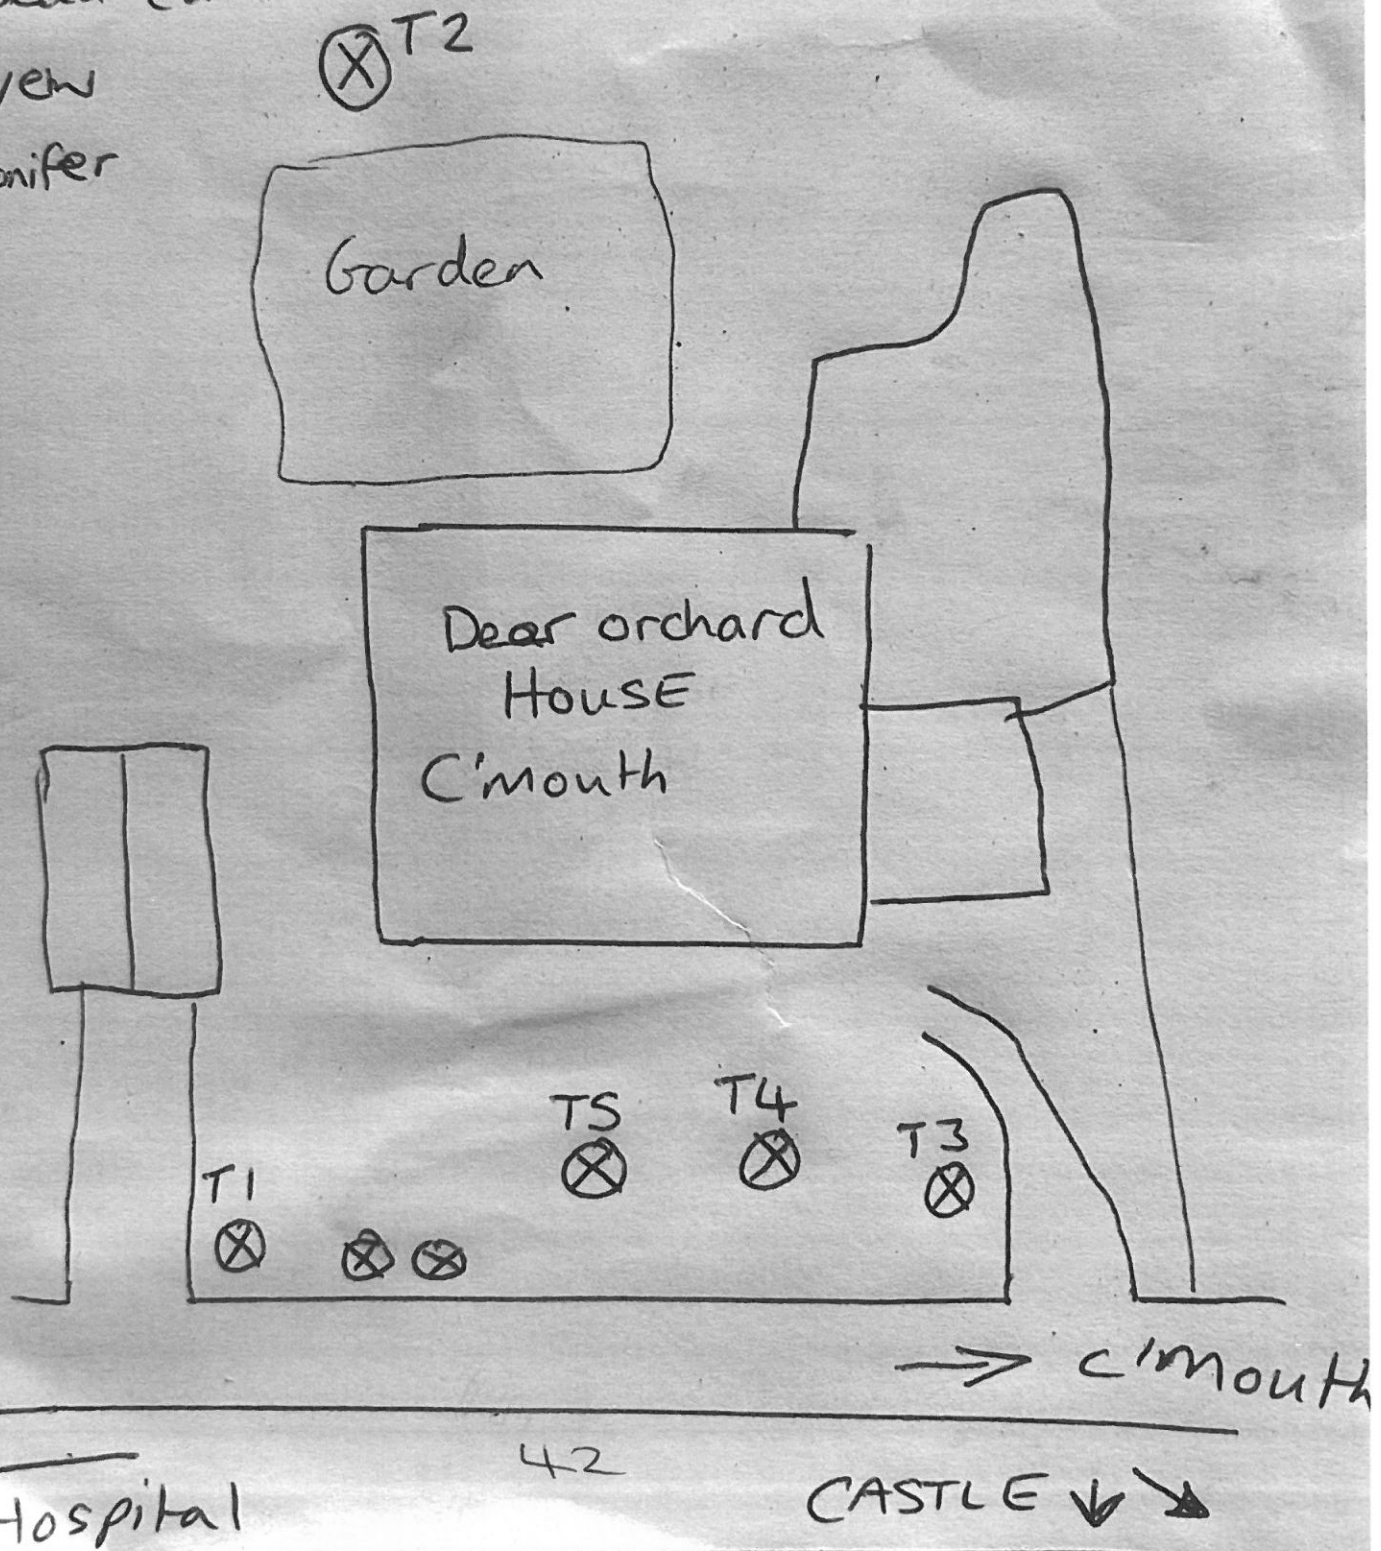 T2
yew
onifer
Garden
Dear orchard
HOUSE
C'mouth
T5
T4
T3
T1
→ C'Mouth
42
Hospital
CASTLE ↓ ↘